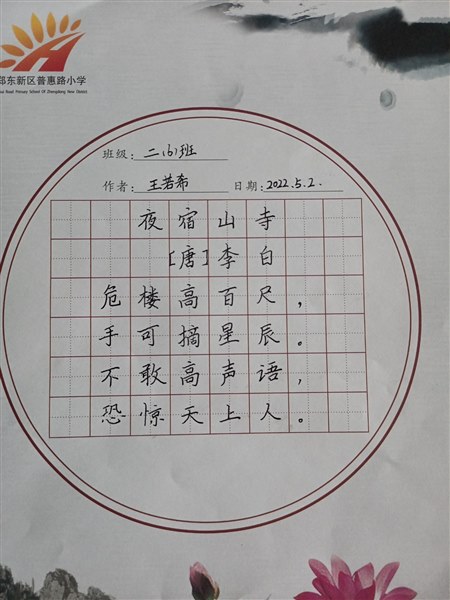 郑东新区普惠路小学
班级：二（6）班
作者：王若希 日期：2022.5.2.
夜宿山寺
[唐]李白
危楼高百尺，
手可摘星辰。
不敢高声语，
恐惊天上人。